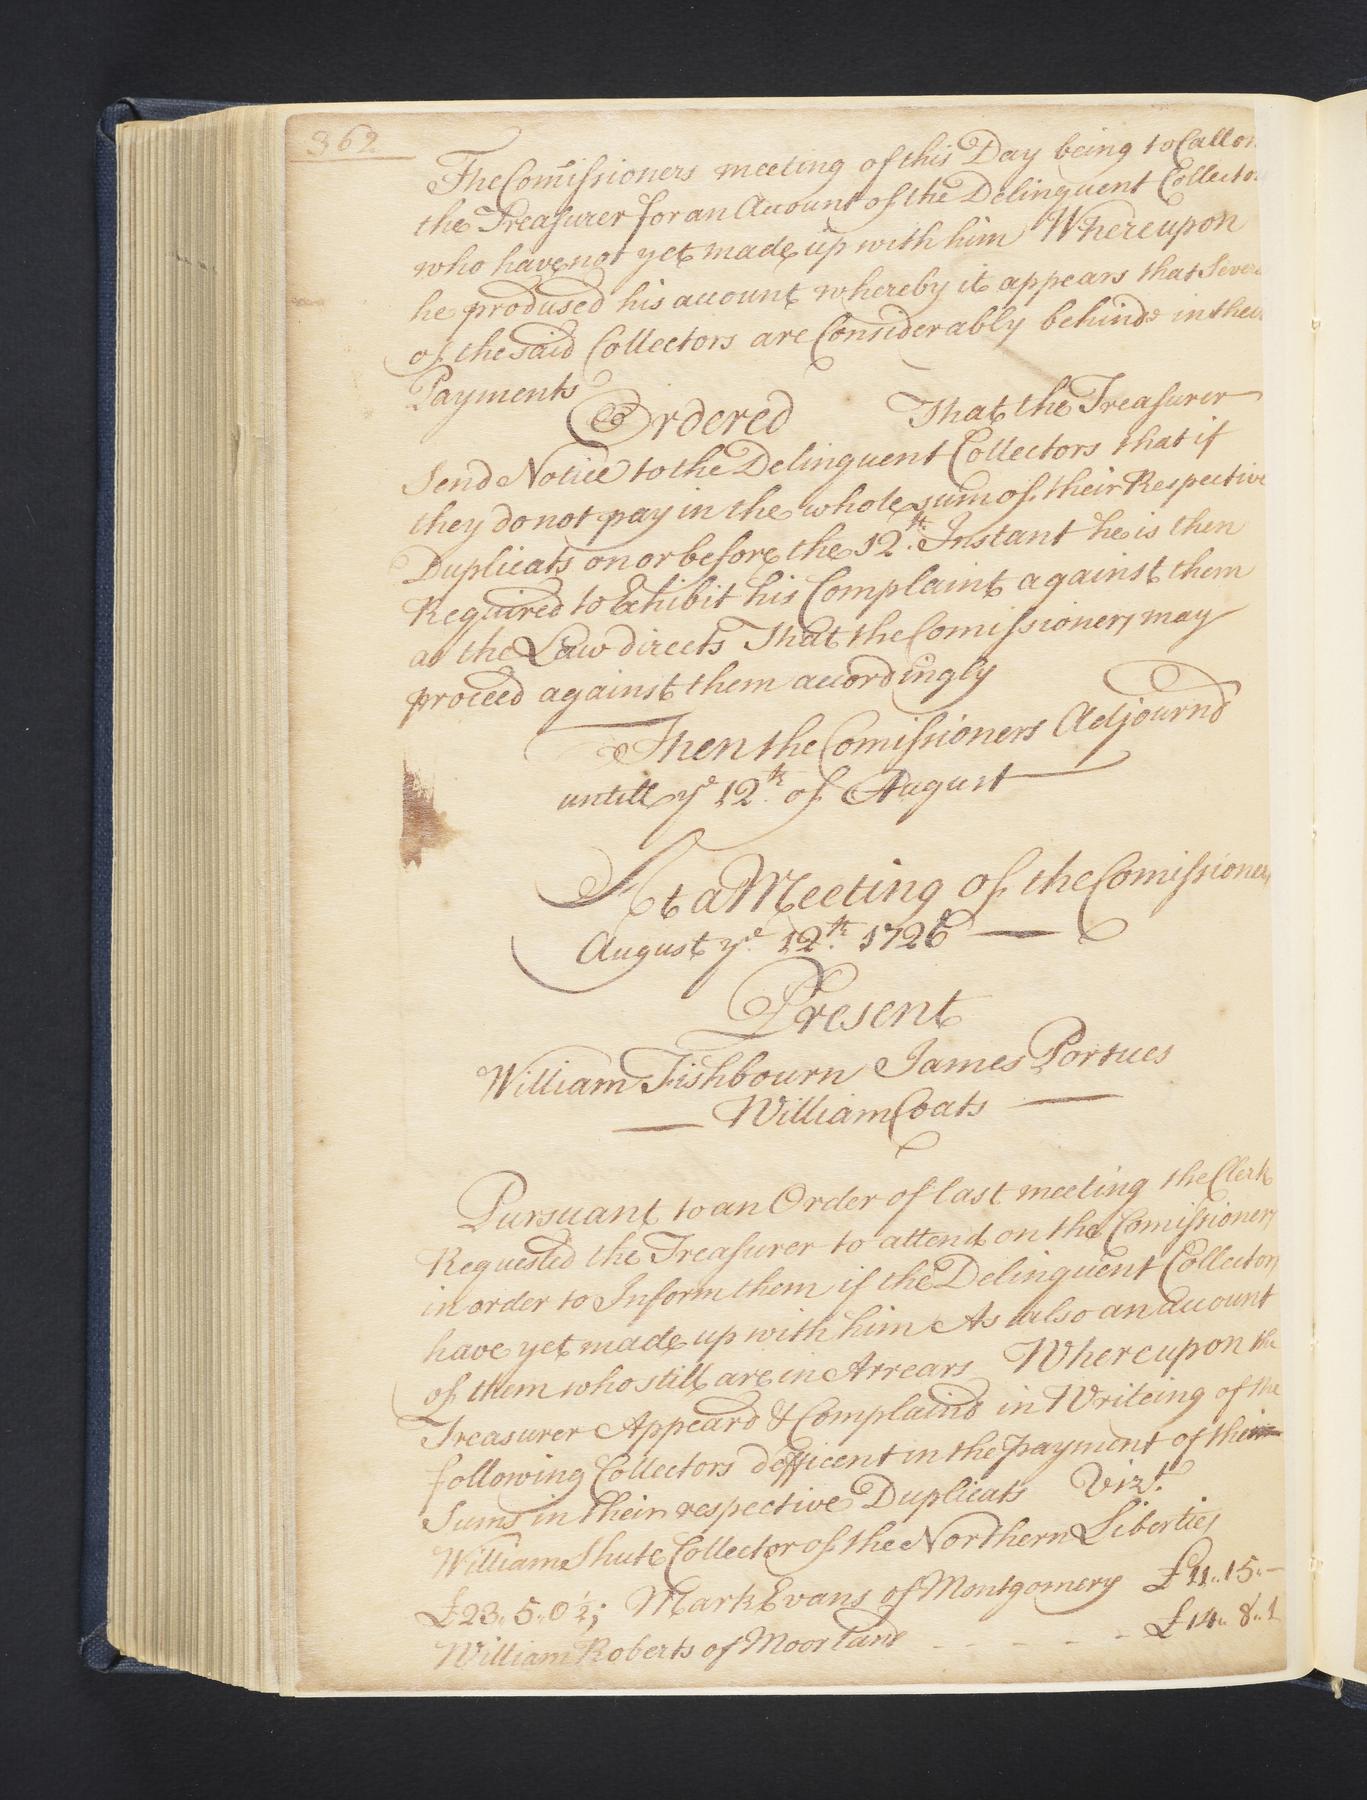 362
The Comissioners meeting of this Day being to Call on
the Treasurer for an Account of the Delinquent Collectors
who have not yet made up with him Whereupon
he prodused his account whereby it appears that Severa
of the said Collectors are Considerably behind in their
Payments
Ordered That the Treasurer
Send Notice to the Delinquent Collectors that if
they do not pay in the whole sum of their Respective
Duplicats on or before the 12th. Instant he is then
Required to Exhibit his Complaint against them
as the Law directs That the Comissioners may
proceed against them accordingly
Then the Comissioners Adjournd
untill ye 12th. of August
At a Meeting of the Comissioners
August ye. 12th. 1726
Present
William Fishbourn James Portues
William Coats
Pursuant to an Order of last meeting the Clerk
Requested the Treasurer to attend on the Comissioners
in order to Inform them if the Delinquent Collectors
have yet made up with him As also an Account
of them who still are in Arrears Whereupon the
Treasurer Appeard & Complaind in Writeing of the
following Collectors defficent in the payment of their
Sums in their respective Duplicats Vizt.
William Shute Collector of the Northern Liberties
£23.. 5.. 0½; Mark Evans of Montgomery £11..15..–
William Roberts of Moorland - - - - - £14.. 8..1